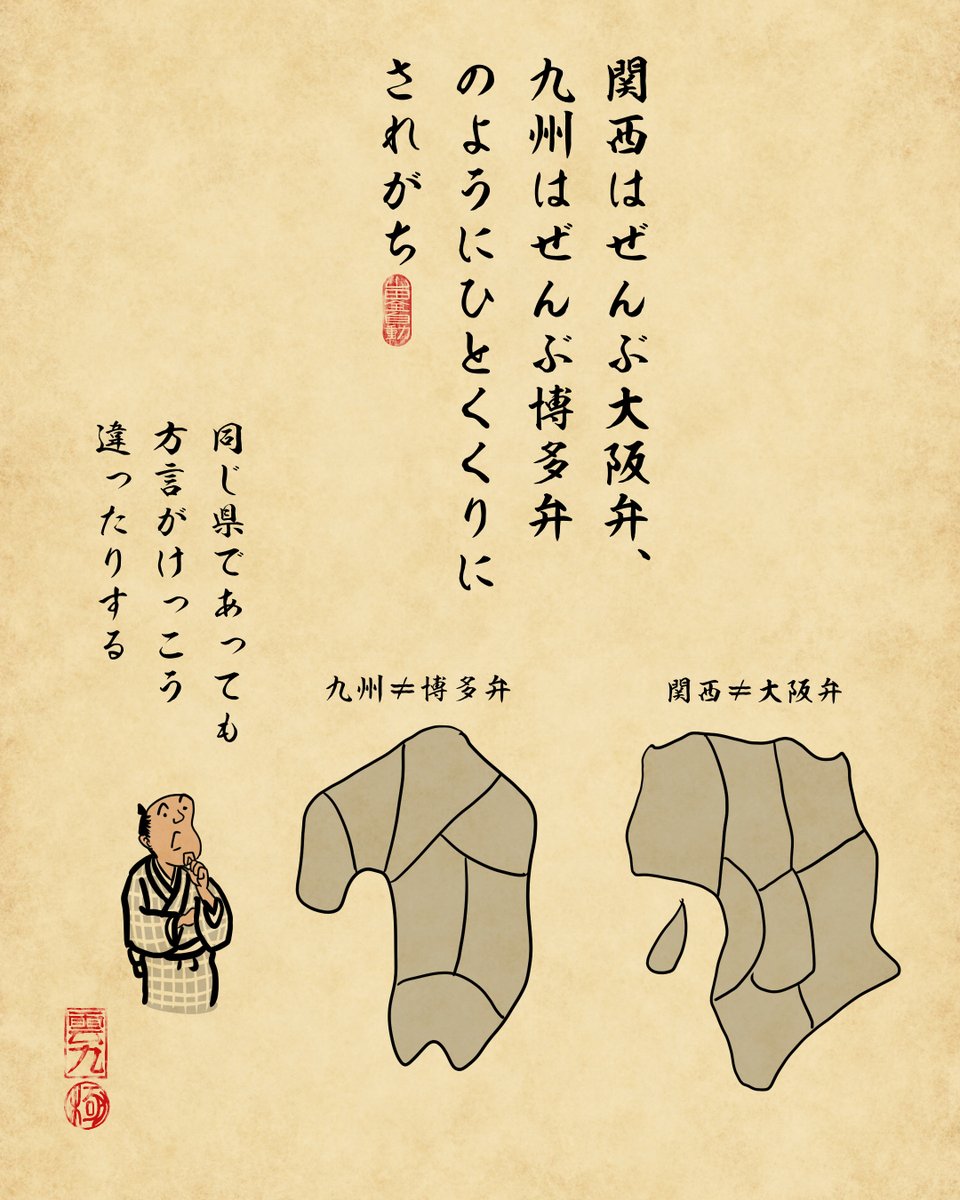 関西はぜんぶ大阪弁、
九州はぜんぶ博多弁
のようにひとくくりに
されがち
同じ県であっても
方言がけっこう
違ったりする
九州≠博多弁
関西≠大阪弁